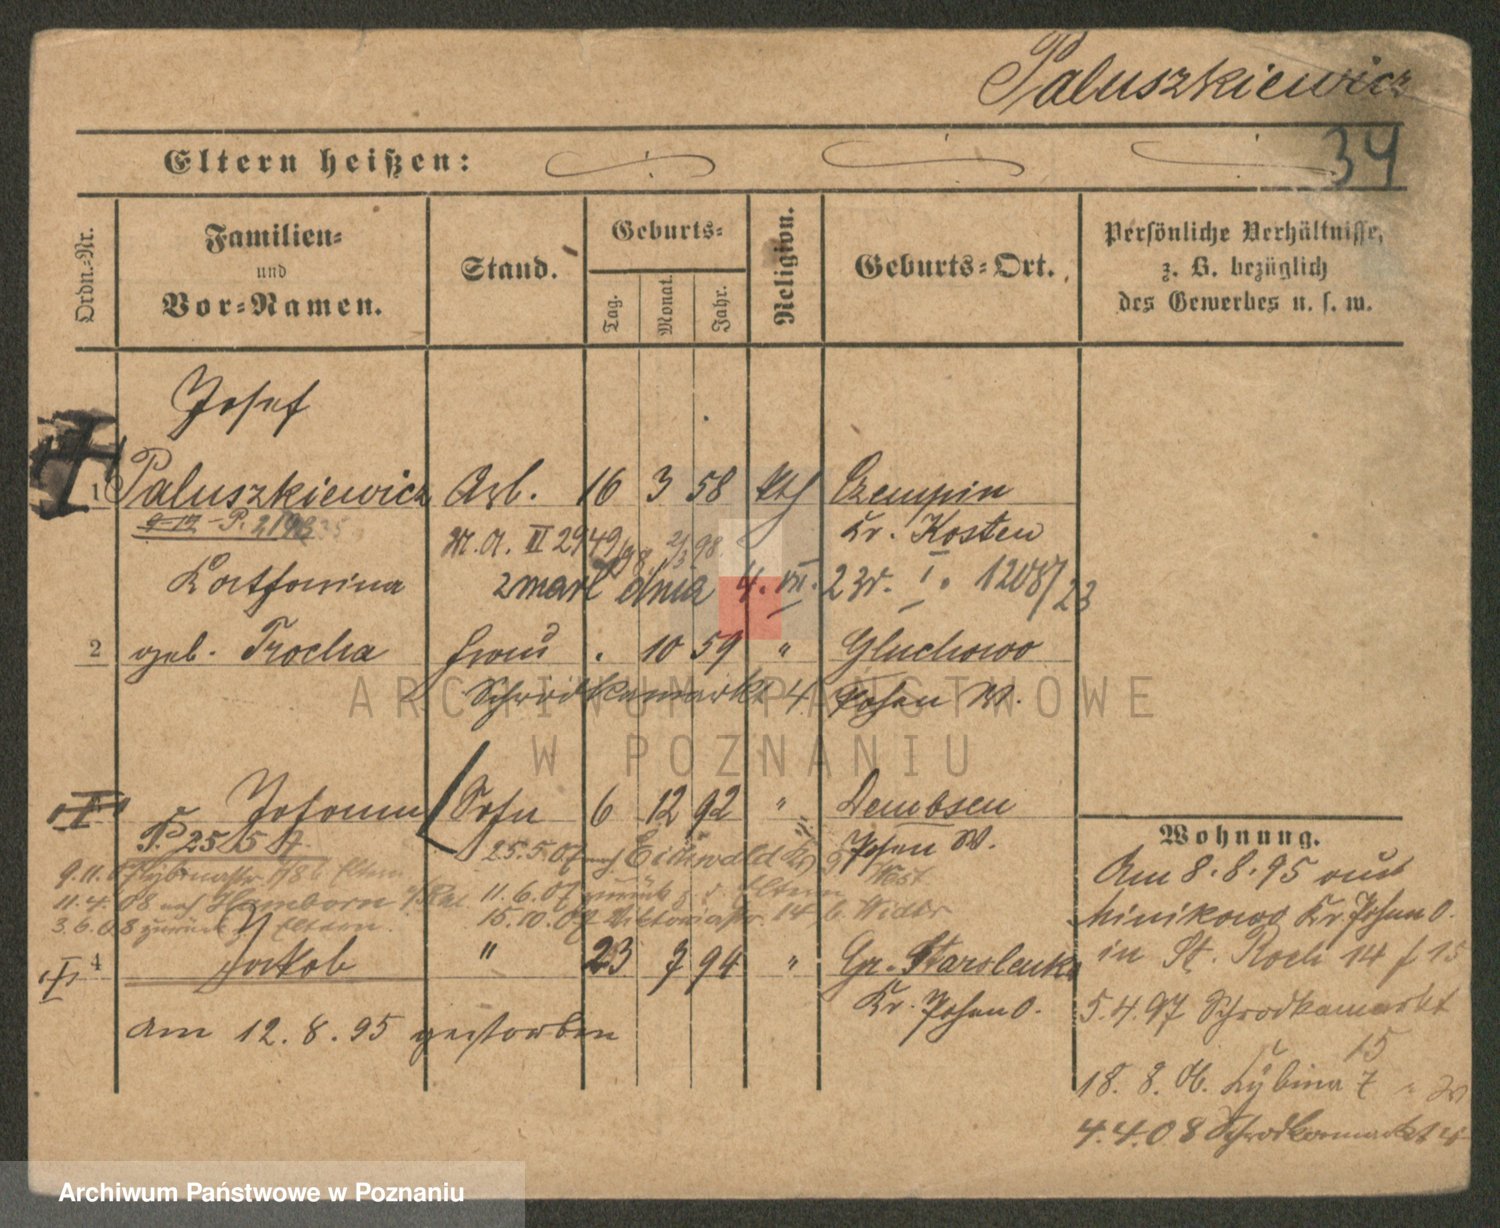 Paluszkiewicz
34
Eltern heißen:
Ordn.-Nr.
Familien-
und
Vor-Namen.
Stand.
Geburts-
Tag.
Monat.
Jahr.
Religion.
Geburts-Ort.
Persönliche Verhältnisse,
z. B. bezüglich
des Gewerbes u. s. w.
Josef
1 Paluszkiewicz Arb. 16 3 58 kth Czempin
Kr. Kosten
M. A. II 2949
zmarł dnia 4. VII. 23r. I. 1208/23
Katharina
2 geb. Trocha Frau . 10 59 " Gluchowo
Schrodkamarkt 4 Posen W.
Johann Sohn 6 12 92 " Dembsen
Posen W.
25.5.07 nach Eichwald
11.6.07 zurück z. d. Eltern
15.10.07 Viktoriastr. 14 b.
11.4.08 nach Hamborn
3.6.08 zurück z. Eltern.
4 Jakob " 23 7 94 " Gr. Starolenka
Kr. Posen O.
am 12.8.95 gestorben
Wohnung.
Am 8.8.95 aus
Minikowo Kr. Posen O.
in St. Roch 14/15
5.4.97 Schrodkamarkt
15
18. 8. 06. Cybina 7
4.4.08 Schrodkamarkt 4
ARCHIWUM PAŃSTWOWE
W POZNANIU
Archiwum Państwowe w Poznaniu